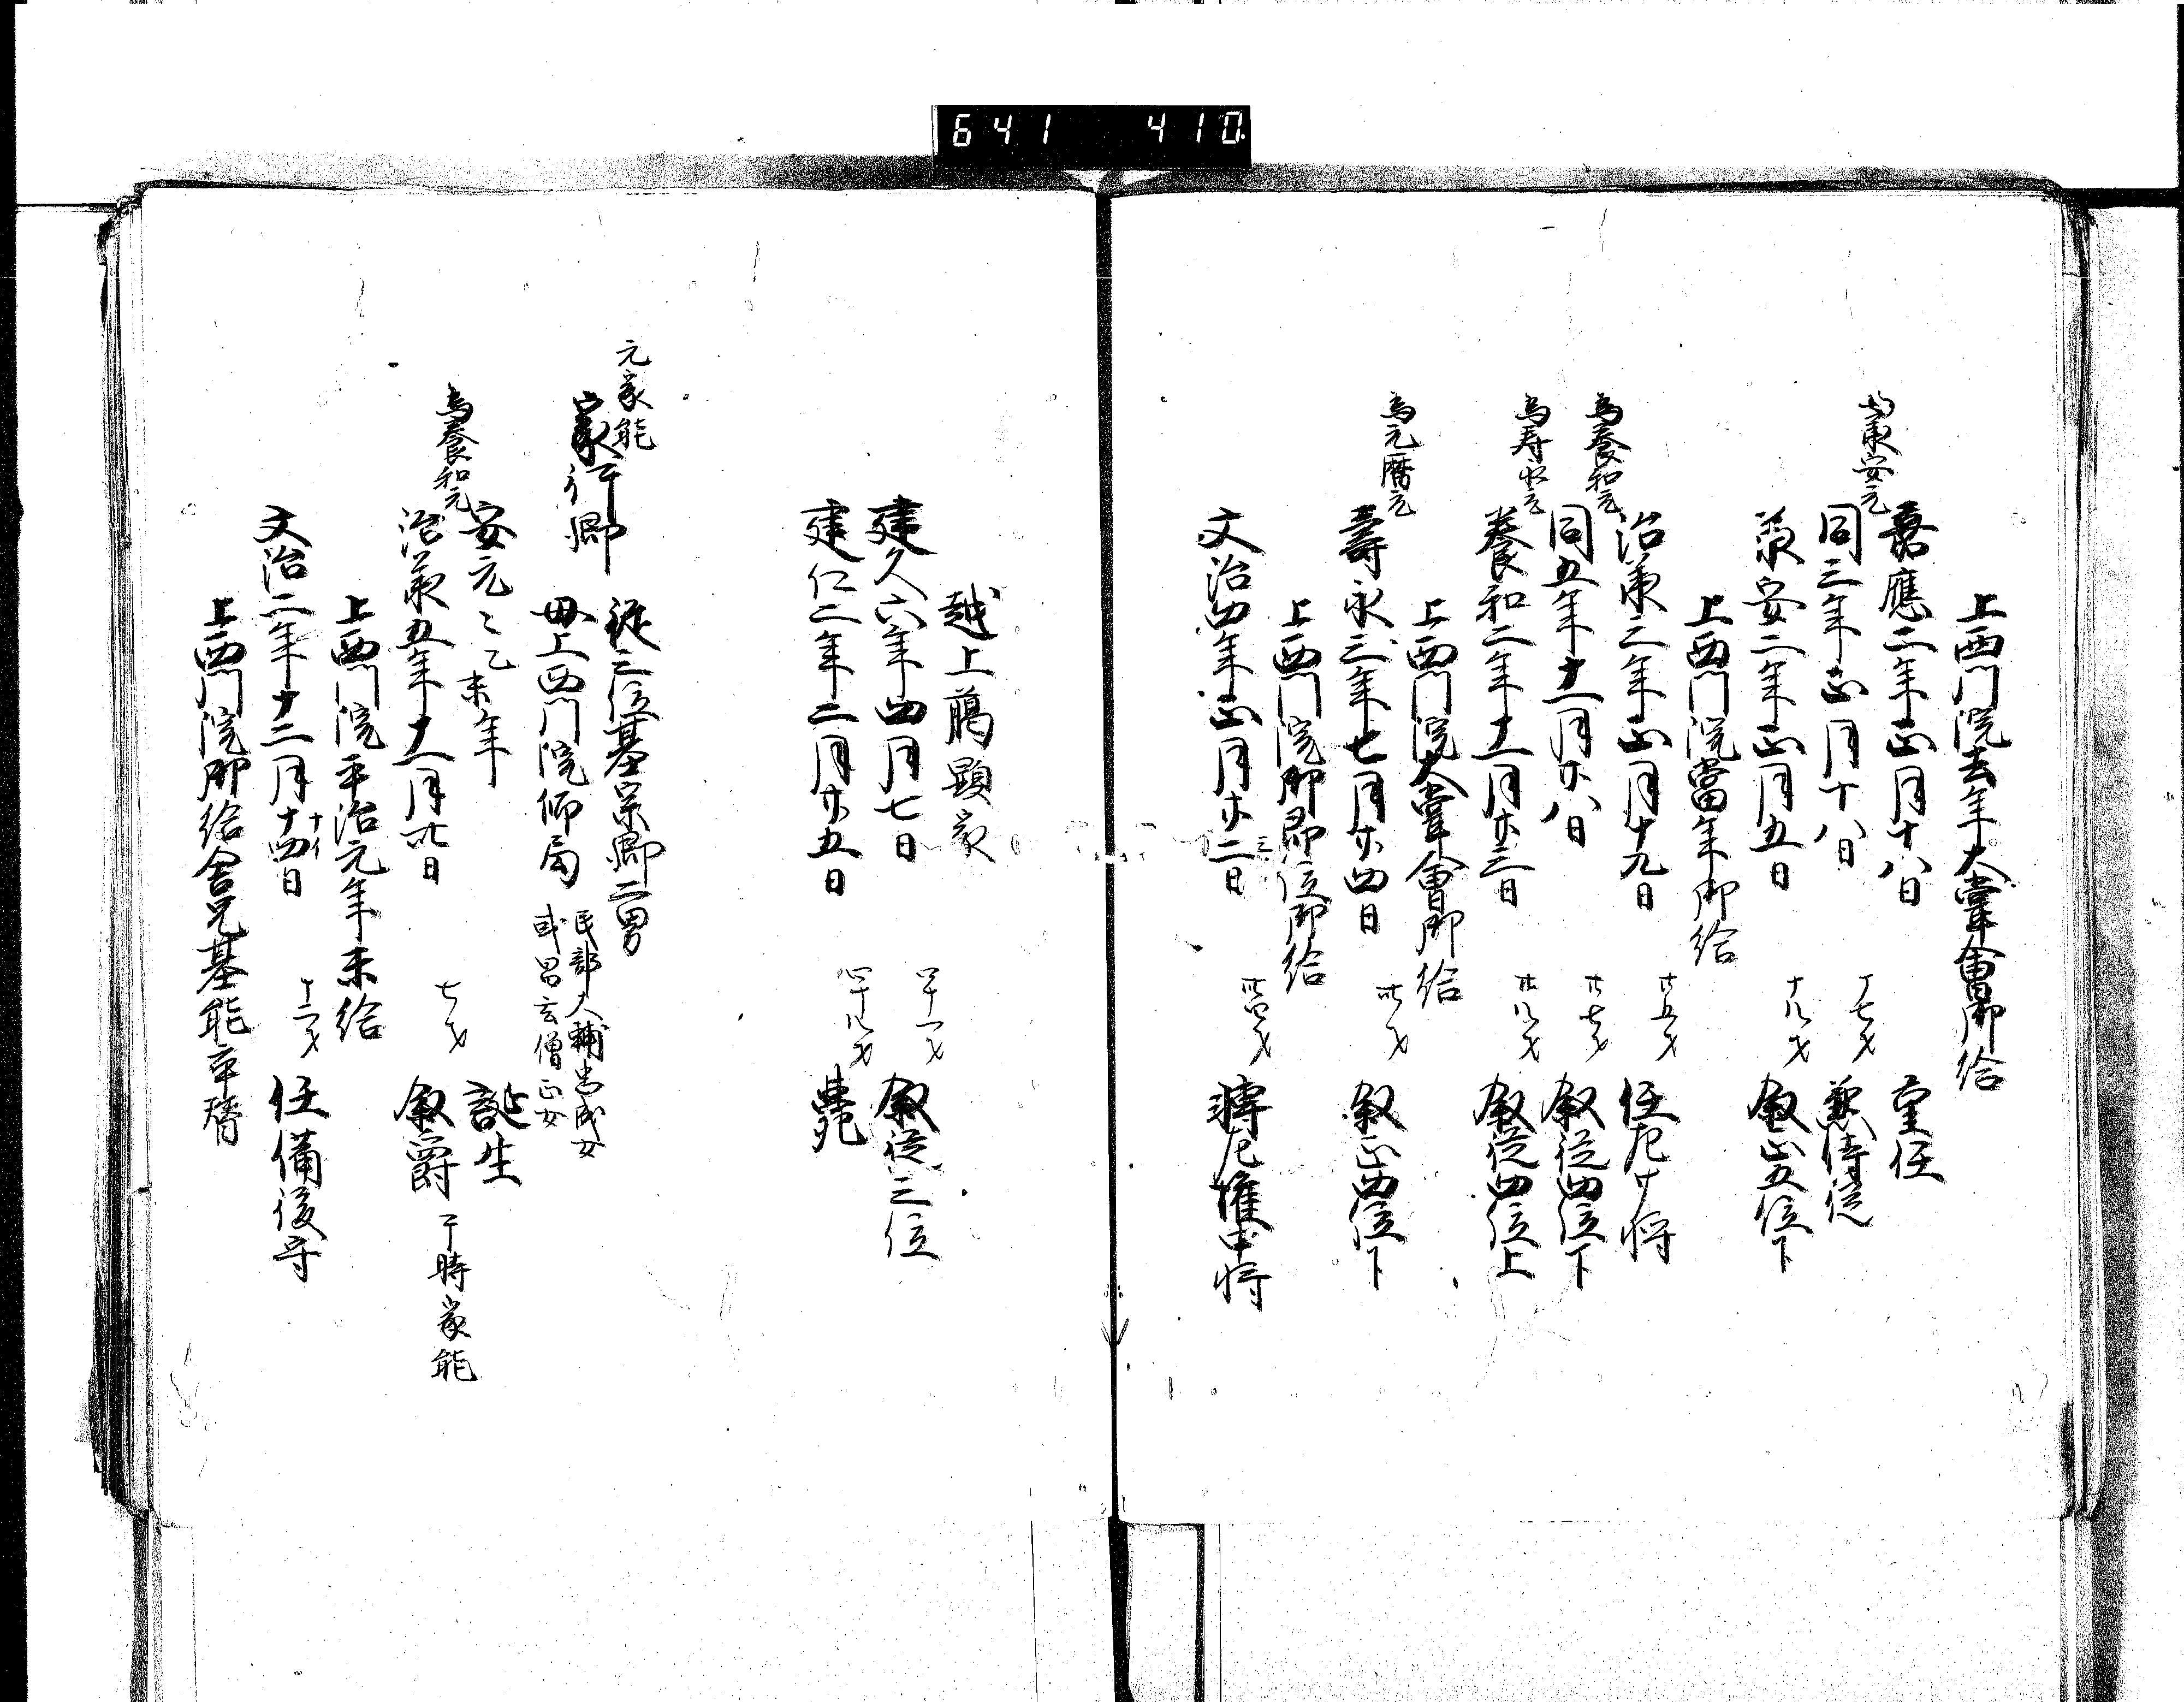 641 410
上西門院去年大嘗會御給
嘉應二年正月十八日 重任
為承安元
同三年正月十八日 十七才 兼侍従
承安二年正月五日 十八才 叙正五位下
上西門院當年御給
治承三年正月十九日 廿五才 任左少将
為養和元
同五年十一月廿八日 廿七才 叙従四位下
為寿永元
養和二年十一月廿三日 廿八才 叙従四位上
上西門院大嘗會御給
為元暦元
壽永三年七月廿四日 卅才 叙正四位下
上西門院御即位御給
文治四年正月廿二日 卅四才 轉左権中将
越上臈顕家
建久六年四月七日 四十一才 叙従三位
建仁二年二月廿五日 四十八才 薨
元家能
家行卿 従三位基宗卿二男
母上西門院帥局 民部大輔忠成女
或昌云僧正女
安元々乙未年 誕生
為養和元
治承五年十一月廿九日 七才 叙爵 于時家能
上西門院平治元年未給
文治二年十二月十四日 十二才 任備後守
上西門院御給舎兄基能卒替